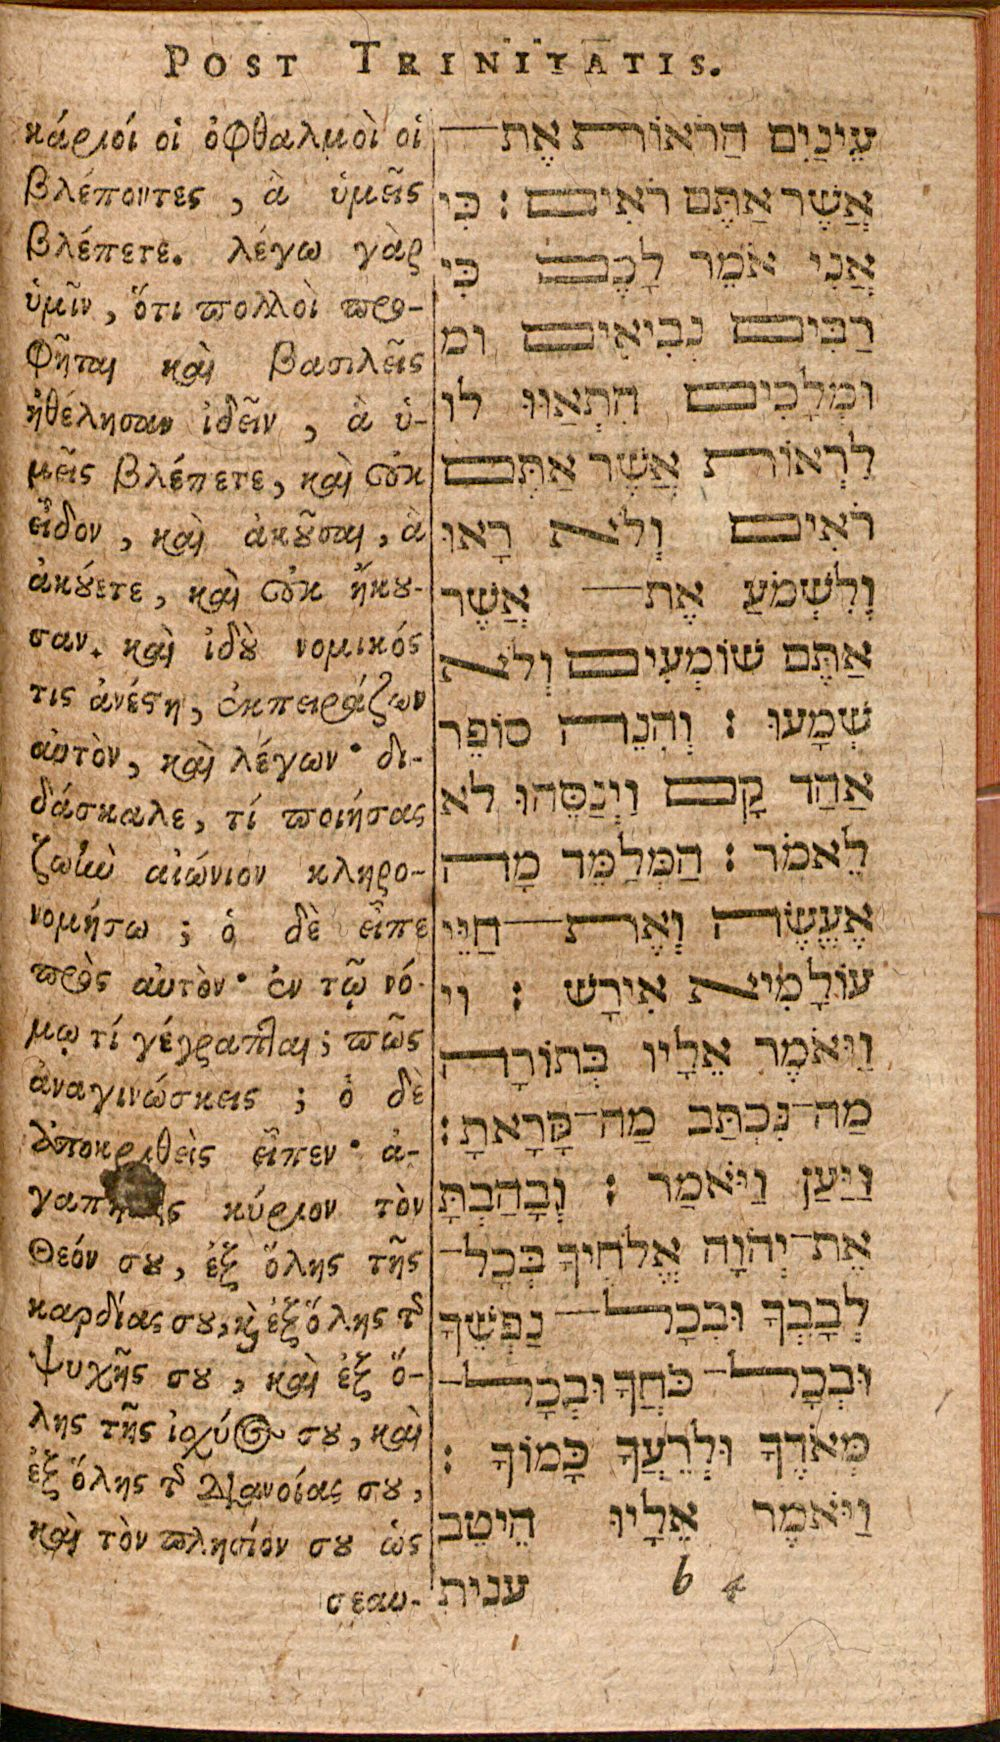 POST TRINITATIS.
κάριοί οἱ ὀφθαλμοὶ οἱ
βλέποντες, ἃ ὑμεῖς
βλέπετε. λέγω γὰρ
ὑμῖν, ὅτι πολλοὶ προ-
φῆται καὶ βασιλεῖς
ἠθέλησαν ἰδεῖν, ἃ ὑ-
μεῖς βλέπετε, καὶ οὐκ
εἶδον, καὶ ἀκοῦσαι, ἃ
ἀκούετε, καὶ οὐκ ἤκου-
σαν. καὶ ἰδοὺ νομικός
τις ἀνέστη, ἐκπειράζων
αὐτὸν, καὶ λέγων· δι-
δάσκαλε, τί ποιήσας
ζωὴν αἰώνιον κληρο-
νομήσω; ὁ δὲ εἶπε
πρὸς αὐτὸν· ἐν τῷ νό-
μῳ τί γέγραπται; πῶς
ἀναγινώσκεις; ὁ δὲ
ἀποκριθεὶς εἶπεν· ἀ-
γαπήσεις κύριον τὸν
Θεόν σου, ἐξ ὅλης τῆς
καρδίας σου, καὶ ἐξ ὅλης τῆς
ψυχῆς σου, καὶ ἐξ ὅ-
λης τῆς ἰσχύος σου, καὶ
ἐξ ὅλης τῆς διανοίας σου,
καὶ τὸν πλησίον σου ὡς
σεαυ-
עֵינַיִם הַרֹאוֹת אֶת־
אֲשֶׁר אַתֶּם רֹאִים : כִּי
אֲנִי אֹמֵר לָכֶם כִּי
רַבִּים נְבִיאִים ומ
וּמְלָכִים הִתְאַוּוּ לו
לִרְאוֹת אֲשֶׁר אַתֶּם
רֹאִים וְלֹא רָאוּ
וְלִשְׁמֹעַ אֶת־ אֲשֶׁר
אַתֶּם שׁוֹמְעִים וְלֹא
שָׁמָעוּ : וְהִנֵּה סוֹפֵר
אַחַד קָם וַיְנַסֵּהוּ לא
לֵאמֹר : הַמְּלַמֵּד מָה
אֶעֱשֶׂה וְאֶת־חַיֵּי
עוֹלָמִים אִירָשׁ : וי
וַיּאֹמֶר אֵלָיו בְּתוֹרָה
מַה־נִּכְתַּב מַה־קָּרָאתָ :
וַיַּעַן וַיֹּאמַר : וְאָהַבְתָּ
אֶת־יְהֹוָה אֱלֹהֶיךָ בְּכָל־
לְבָבְךָ וּבְכָל־ נַפְשֶׁךָ
וּבְכָל־ כֹּחֲךָ וּבְכָל־
מְאֹדֶךָ וּלְרֵעֲךָ כָּמוֹךָ :
וַיּאֹמֶר אֵלָיו הֵיטֵב
ענית
b 4